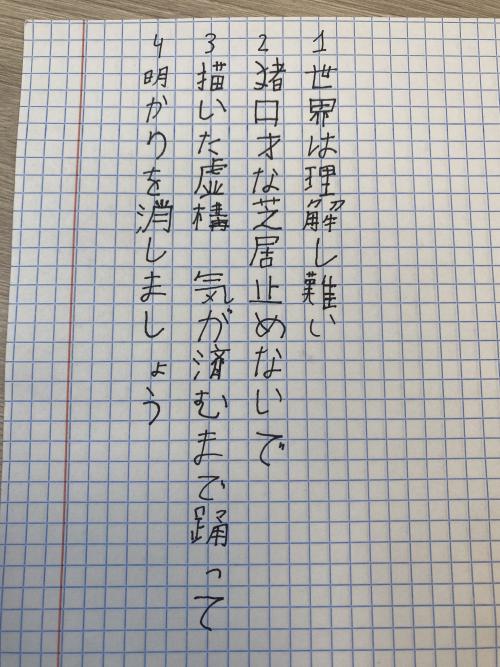 1世界は理解し難い
2猪口才な芝居止めないで
3描いた虚構 気が済むまで踊って
4明かりを消しましょう